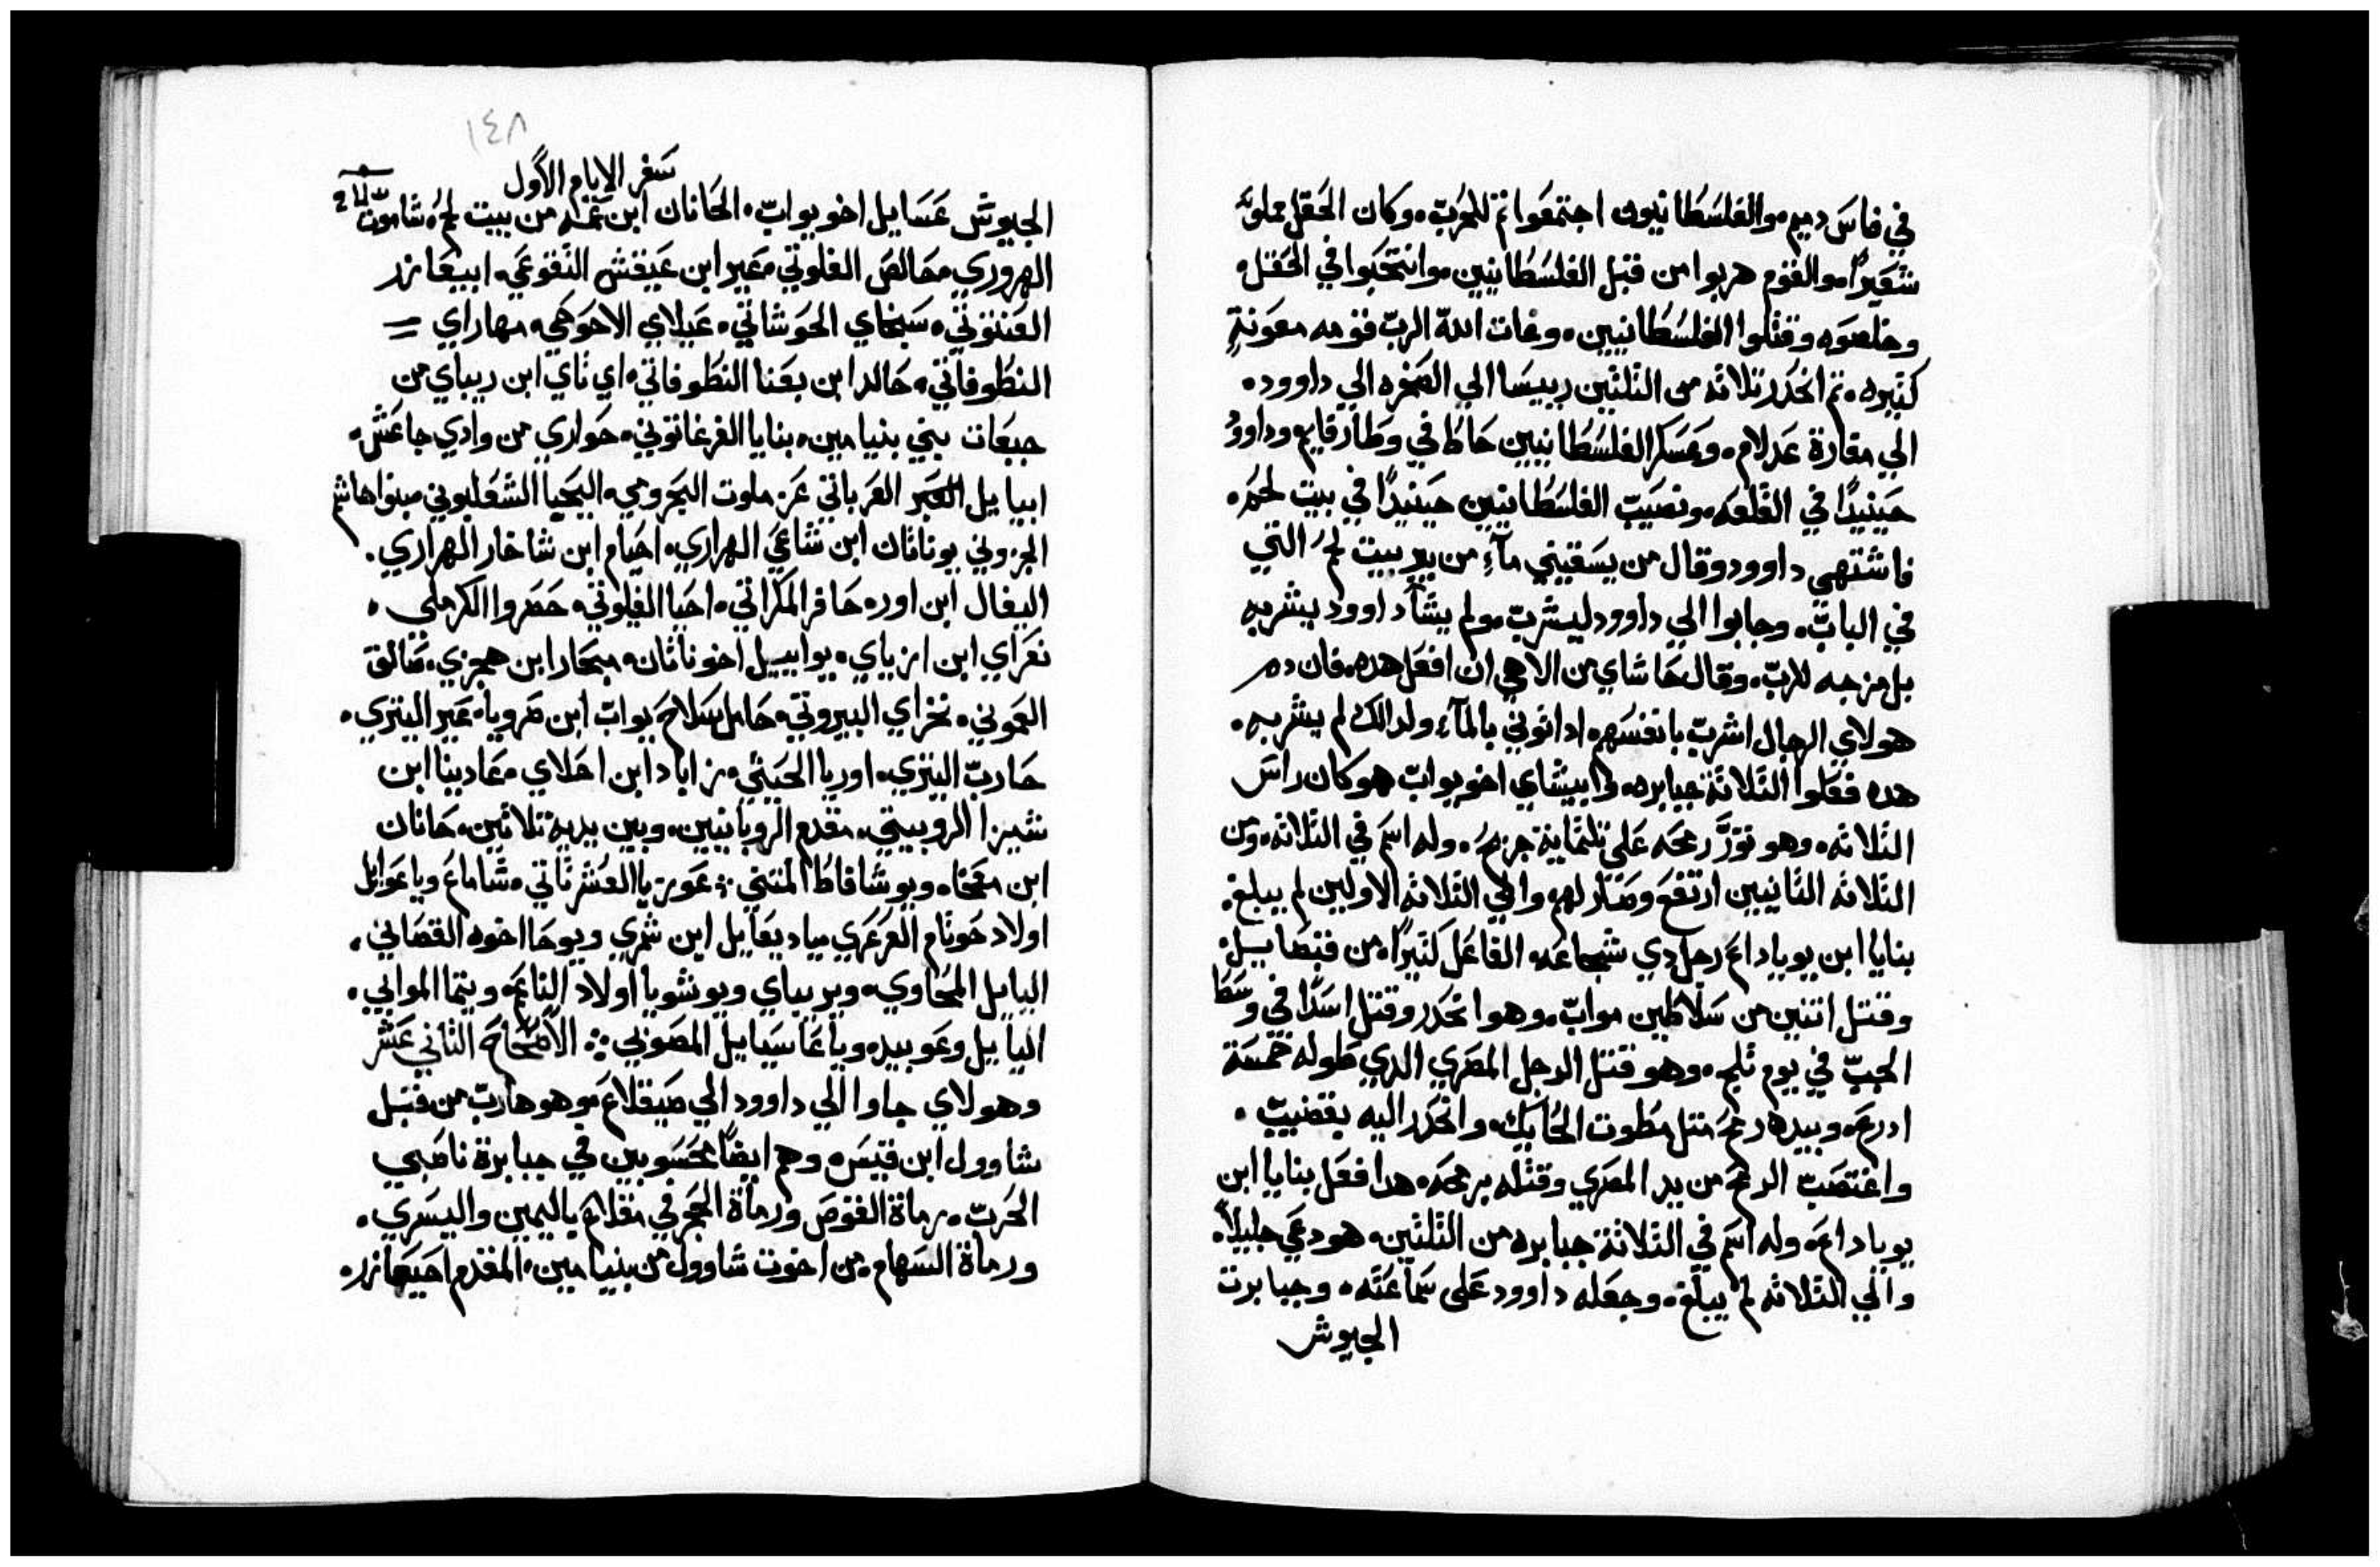 في فاس دميم والفلسطانيون اجتمعوا ثم للحرب وكان الحقل مملوء
شعيرًا والقوم هربوا من قبل الفلسطانيين وانتحبوا في الحقل
وخلصوه وقتلوا الفلسطانيين وغات الله الرب قومه معونةٍ
كتيره ثم انحدر تلاته من التلتين رييسا الي الصخره الي داوود
الي مغارة عدلام وعسكر الفلسطانيين حاط في وطا رفايم وداوود
حينيدًا في القلعه ونصيب الفلسطانيين حينيدًا في بيت لحم
فاشتهي داوود وقال من يسقيني مآءِ من بير بيت لحم التي
في الباب وجابوا الي داوود ليشرب ولم يشآ داوود يشربه
بل مزجه للرب وقال حاشاي من الاهي ان افعل هده فان دم
هولاي الرجال اشرب بانفسهم ادا اتوني بالمآء ولدالك لم يشربه
هده فعلوا التلاتة جبابره وابيشاي اخو يواب هو كان راس
التلاته وهو نور رمحه علي تلتماية جزيح وله اسم في التلاته ومن
التلاته التانيين ارتفع وصار لهم والي التلاته الاولين لم يبلغ
بنايا ابن يوياداع رجل دي شجاعه الفاعل كتيرًا من قبصاييل
وقتل اتنين من سلاطين مواب وهو انحدر وقتل اسدًا في وسط
الجب في يوم تلج وهو قتل الرجل المصري الدي طوله خمسة
ادرع وبيده رمح متل مطوت الحايك وانحدر اليه بقضيب
واغتصب الرمح من يد المصري وقتله برمحه هدا فعل بنايا ابن
يوياداع وله اسم في التلاتة جبابره من التلتين هو دعي جليلاً
والي التلاته لم يبلغ وجعله داوود على سماعته وجبابرت
الجيوش
١٤٨
سفر الايام الاول
الجيوش عسايل اخو يواب الحانان ابن عمه من بيت لحم شاموت
الهروري حالص الفلوني عير ابن عيقش التقوعي ابيعازر
العنتوتي سبخاي الحوشاتي عيلاي الاحوحي مهاراي
النطوفاتي حالد ابن بعنا النطوفاتي اي تاي ابن ريباي من
جبعات بني بنيامين بنايا الفرغاتوني حواري من وادي جاعش
ابيايل العرباتي عزماوت البحرومي اليحيا الشعلبوني بنوا هاشم
الجزوني يوناتان ابن شاغي الهراري احيام ابن شاخار الهراري
اليفال ابن اور حافر المكراتي احيا الفلوني حصروا الكرملي
نعراي ابن ازباي يواييل اخو ناتان مبحار ابن هجري صالق
العموني نحراي البيروتي حامل سلاح يواب ابن صرويا عير اليتري
حارب اليتري اوريا الحيتي زاباد ابن احلاي عادينا ابن
شيزا الروبيتي مقدم الروبانيين وبين يديه تلاتين حانان
ابن معخا ويوشافاط المتني عوزيا العشرتاتي شاماع وياعوايل
اولاد حوتام العرعري يادياعايل ابن شمري ويوحا اخوه القصاني
اليايل المحاوي ويريباي ويوشويا اولاد الناعم ويتما الموابي
اليايل وعوبيد وياعاسيايل المصوبي الاصحاح التاني عشر
وهولاي جاوا الي داوود الي صيقلاغ وهو هارب من قبل
شاوول ابن قيس وهم ايضًا محسوبين في جبابرة ناصبي
الحرب رماة القوس ورماة الحجر في مقلاع باليمين واليسري
ورماة السهام من اخوت شاوول من بنيامين المقدم احيعازر